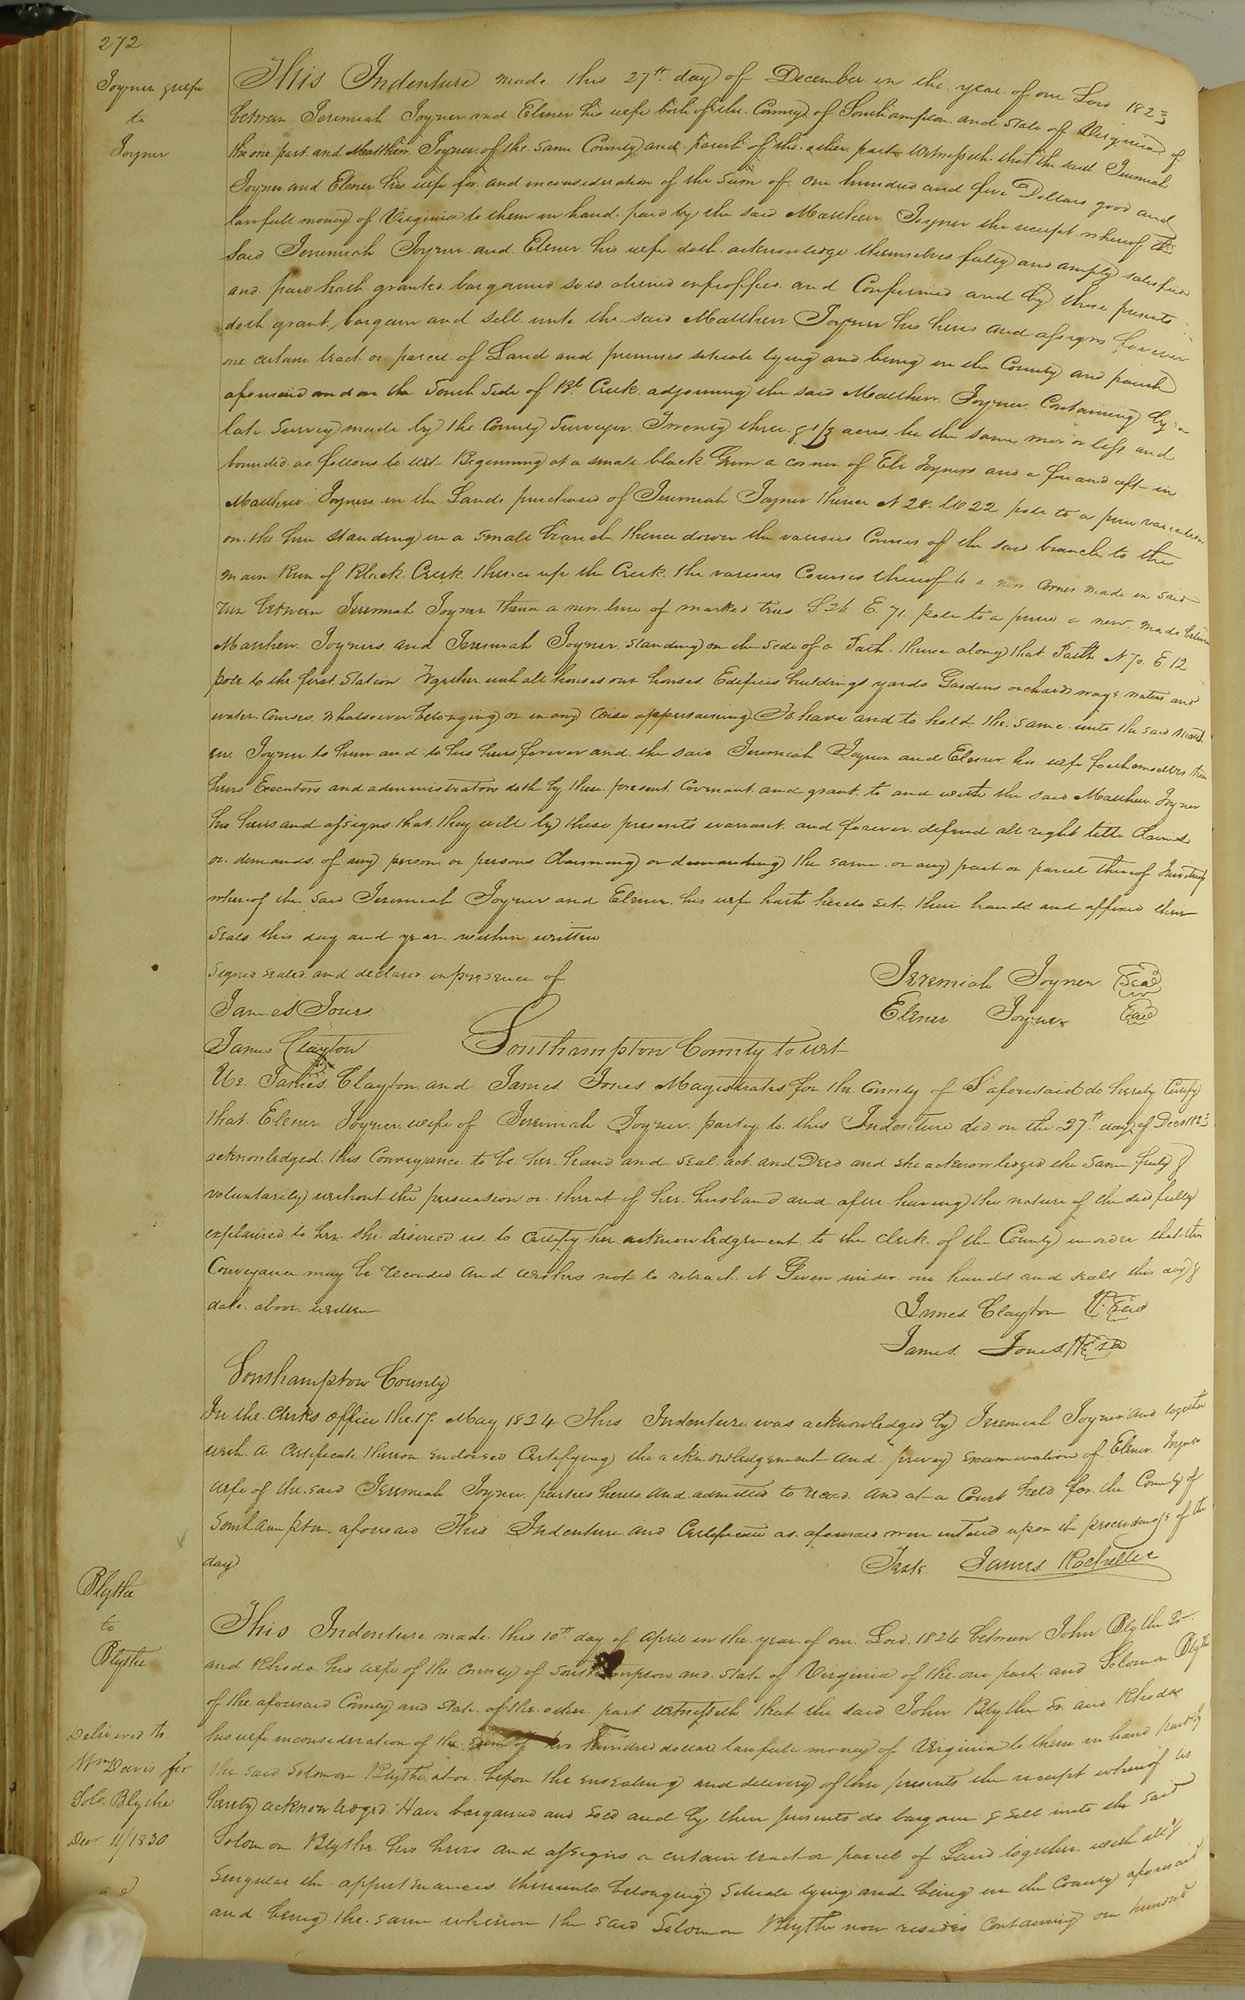 272
Joyner & wife
to
Joyner
This Indenture made this 27th day of December in the year of our Lord 1823
between Jeremiah Joyner and Elener his wife both of the County of Southampton and State of Virginia of
the one part and Matthew Joyner of the same County and Parish of the other part Witnesseth that the said Jeremiah
Joyner and Elener his wife for and inconsideration of the sum of one hundred and five Dollars good and
lawfull money of Virginia to them in hand paid by the said Matthew Joyner the receipt whereof the
said Jeremiah Joyner and Elener his wife doth acknowledge themselves fully and amply satisfied
and paid hath granted bargained sold aliened enfeoffed and Confirmed and by these presents
doth grant, bargain and sell unto the said Matthew Joyner his heirs and assigns forever
one certain tract or parcel of Land and premises situate lying and being in the County and parish
aforesaid and on the South side of Bk Creek adjoining the said Matthew Joyner Containing by a
late Survey made by the County Surveyor Twenty three & 1/3 acres be the same more or less and
bounded as follows to wit Beginning at a small black Gum a corner of Eli Joyners and a fore and aft in
Matthew Joyners in the Lands purchased of Jeremiah Joyner thence N 28. W 22 pole to a pine
on the line standing in a small branch thence down the various Courses of the said branch to the
main Run of Black Creek thence up the Creek the various Courses thereof to a new corner made in said
run between Jeremiah Joyner thence a new line of marked trees S. 26 E. 71. pole to a pine a new made between
Matthew Joyners and Jeremiah Joyner standing on the side of a Path thence along that Path N 70. E. 12
pole to the first Station Together with all houses out houses Edifices buildings yards Gardens orchards ways waters and
water courses whatsoever belonging or in any wise appertaining To have and to hold the same unto the said Matth
ew Joyner to him and to his heirs forever and the said Jeremiah Joyner and Elener his wife for themselves their
heirs Executors and administrators doth by these present Covenant and grant to and with the said Matthew Joyner
his heirs and assigns that they will by these presents warrant and forever defend all right title Claims
or demands of any person or persons Claiming or demanding the same or any part or parcel thereof In witness
whereof the said Jeremiah Joyner and Elener his wife hath hereto set their hands and affixed their
seals this day and year within written
Signed sealed and declared in presence of
Jeremiah Joyner Seal
James Jones
Elener Joyner Seal
James Clayton
Southampton County to wit
We James Clayton and James Jones Magistrates for the County of S aforesaid do hereby Certify
that Elener Joyner wife of Jeremiah Joyner partey to this Indenture did on the 27th day of Decr 1823
acknowledged this Conveyance to be her hand and seal act and Deed and she acknowledged the same freely &
voluntarily without the persuasion or threat of her husband and after having the nature of the deed fully
explained to her she desired us to Certify her acknowledgement to the clerk of the County in order that this
Conveyance may be recorded and wishes not to retract it Given under our hands and seals this day &
date above written
James Clayton Seal
James Jones Seal
Southampton County
In the Clerks office the 17 May 1824 This Indenture was acknowledged by Jeremiah Joyner and together
with a Certificate thereon endorsed Certifying the acknowledgement and privey examination of Elener Joyner
wife of the said Jeremiah Joyner parties hereto and admitted to record and at a Court held for the County of
Southampton aforesaid This Indenture and Certificate as aforesaid were entered upon the proceedings of the
day
Teste James Rochelle
Blythe
to
Blythe
Delivered to
Wm Davis for
Solo. Blythe
Decr 11/1830
This Indenture made this 10th day of April in the year of our Lord 1824 between John Blythe Sr.
and Rhoda his wife of the County of Southampton and State of Virginia of the one part and Solomon Blythe
of the aforesaid County and State of the other part witnesseth that the said John Blythe Sr and Rhoda
his wife inconsideration of the sum of two hundred dollars lawfull money of Virginia to them in hand paid by
the said Solomon Blythe at or before the ensealing and delivery of these presents the receipt whereof is
hereby acknowledged Have bargained and sold and by these presents do bargain & sell unto the said
Solomon Blythe his heirs and assigns a certain tract or parcel of Land together with all &
singular the appurtenances thereunto belonging Situate lying and being in the County aforesaid
and being the same whereon the said Solomon Blythe now resides Containing one hundred